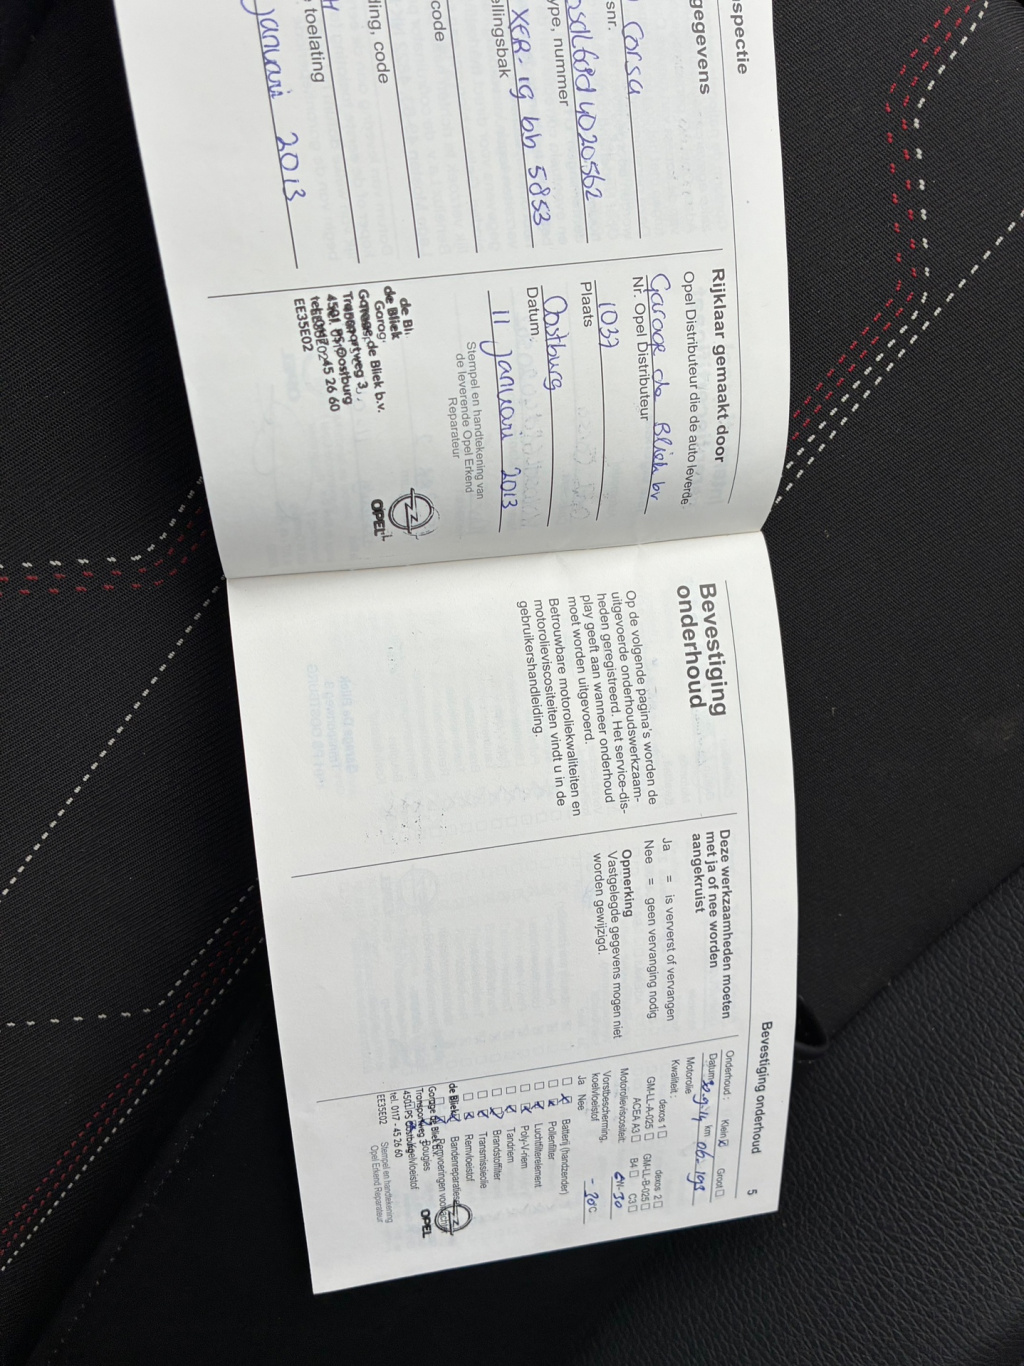 spectie
gegevens
Corsa
snr.
0sdL68d4020562
ype, nummer
XER-19 bb 5853
ellingsbak
code
ding, code
toelating
januari 2013
Rijklaar gemaakt door
Opel Distributeur die de auto leverde
Garage de Bliek bv
Nr. Opel Distributeur
1037
Plaats
Oostburg
Datum
11 januari 2013
Stempel en handtekening van
de leverende Opel Erkend
Reparateur
de Bliek
Garage de Bliek b.v.
Transportweg 3
4501 PS Oostburg
tel. 0117-45 26 60
EE35E02
OPEL
Bevestiging
onderhoud
Op de volgende pagina's worden de
uitgevoerde onderhoudswerkzaam-
heden geregistreerd. Het service-dis-
play geeft aan wanneer onderhoud
moet worden uitgevoerd.
Betrouwbare motoroliekwaliteiten en
motorolieviscositeiten vindt u in de
gebruikershandleiding.
Deze werkzaamheden moeten
met ja of nee worden
aangekruist
Ja = is ververst of vervangen
Nee = geen vervanging nodig
Opmerking
Vastgelegde gegevens mogen niet
worden gewijzigd.
Bevestiging onderhoud
5
Onderhoud: Klein Groot
Datum km
Motorolie
Kwaliteit:
dexos 1 dexos 2
GM-LL-A-025 GM-LL-B-025
ACEA A3 B4 C3
Motorolieviscositeit
Vorstbescherming,
koelvloeistof -30°C
Ja Nee
Batterij (handzender)
Pollenfilter
Luchtfilterelement
Poly-V-riem
Tandriem
Brandstoffilter
Transmissieolie
Remvloeistof
Bandenreparatieset
Remvoeringen
Bougies
Koelvloeistof
de Bliek
Garage de Bliek b.v.
Transportweg 3
4501 PS Oostburg
tel. 0117 - 45 26 60
EE35E02
OPEL
Stempel en handtekening
Opel Erkend Reparateur